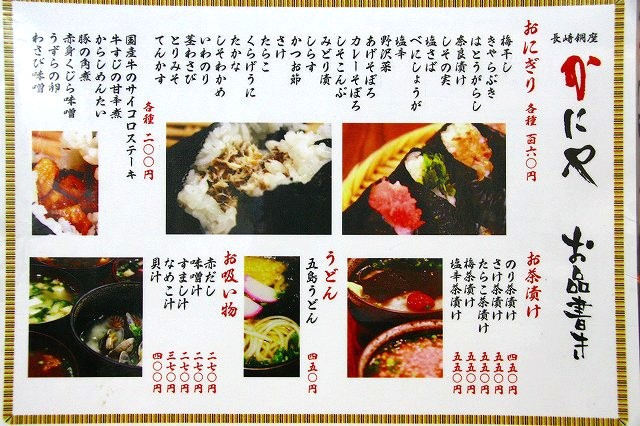 長崎銅座
かにや
お品書き
おにぎり 各種 百六〇円
梅干し
きゃらぶき
はとうがらし
奈良漬け
しその実
塩さば
べにしょうが
野沢菜
塩辛
あげそぼろ
カレーそぼろ
しそこんぶ
みどり漬
しらす
かつお節
さけ
たらこ
くらげうに
たかな
しそわかめ
いわのり
茎わさび
とりみそ
てんかす
各種 二〇〇円
国産牛のサイコロステーキ
牛すじの甘辛煮
からしめんたい
豚の角煮
赤身くじら味噌
うずらの卵
わさび味噌
お茶漬け
のり茶漬け 四五〇円
さけ茶漬け 五五〇円
たらこ茶漬け 五五〇円
梅茶漬け 五五〇円
塩辛茶漬け 五五〇円
うどん
五島うどん 四五〇円
お吸い物
赤だし 二七〇円
味噌汁 二七〇円
すまし汁 二七〇円
なめこ汁 三七〇円
貝汁 四〇〇円